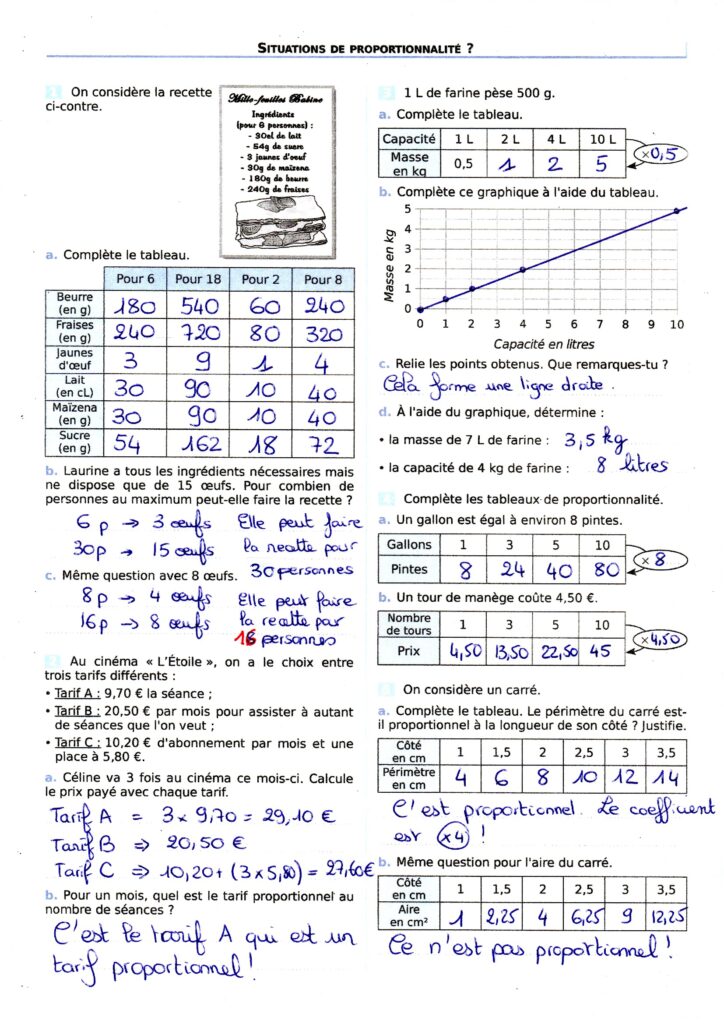 SITUATIONS DE PROPORTIONNALITÉ ?
1 On considère la recette
ci-contre.
Mille-feuilles Babine
Ingrédients
(pour 6 personnes) :
- 30cl de lait
- 54g de sucre
- 3 jaunes d'oeuf
- 30g de maïzena
- 180g de beurre
- 240g de fraises
a. Complète le tableau.
Pour 6 Pour 18 Pour 2 Pour 8
Beurre (en g) 180 540 60 240
Fraises (en g) 240 720 80 320
Jaunes d'œuf 3 9 1 4
Lait (en cL) 30 90 10 40
Maïzena (en g) 30 90 10 40
Sucre (en g) 54 162 18 72
b. Laurine a tous les ingrédients nécessaires mais
ne dispose que de 15 œufs. Pour combien de
personnes au maximum peut-elle faire la recette ?
6 p → 3 œufs Elle peut faire
30p → 15 œufs la recette pour
30 personnes
c. Même question avec 8 œufs.
8 p → 4 œufs Elle peut faire
16p → 8 œufs la recette par
16 personnes
2 Au cinéma « L'Étoile », on a le choix entre
trois tarifs différents :
• Tarif A : 9,70 € la séance ;
• Tarif B : 20,50 € par mois pour assister à autant
de séances que l'on veut ;
• Tarif C : 10,20 € d'abonnement par mois et une
place à 5,80 €.
a. Céline va 3 fois au cinéma ce mois-ci. Calcule
le prix payé avec chaque tarif.
Tarif A = 3 x 9,70 = 29,10 €
Tarif B ⇒ 20,50 €
Tarif C ⇒ 10,20 + (3 x 5,80) = 27,60€
b. Pour un mois, quel est le tarif proportionnel au
nombre de séances ?
C'est le tarif A qui est un
tarif proportionnel !
3 1 L de farine pèse 500 g.
a. Complète le tableau.
Capacité 1 L 2 L 4 L 10 L
Masse en kg 0,5 1 2 5
x0,5
b. Complète ce graphique à l'aide du tableau.
Masse en kg
5
4
3
2
1
0
0 1 2 3 4 5 6 7 8 9 10
Capacité en litres
c. Relie les points obtenus. Que remarques-tu ?
Cela forme une ligne droite.
d. À l'aide du graphique, détermine :
• la masse de 7 L de farine : 3,5 kg
• la capacité de 4 kg de farine : 8 litres
4 Complète les tableaux de proportionnalité.
a. Un gallon est égal à environ 8 pintes.
Gallons 1 3 5 10
Pintes 8 24 40 80
x 8
b. Un tour de manège coûte 4,50 €.
Nombre de tours 1 3 5 10
Prix 4,50 13,50 22,50 45
x4,50
5 On considère un carré.
a. Complète le tableau. Le périmètre du carré est-
il proportionnel à la longueur de son côté ? Justifie.
Côté en cm 1 1,5 2 2,5 3 3,5
Périmètre en cm 4 6 8 10 12 14
C'est proportionnel. Le coefficient
est x4 !
b. Même question pour l'aire du carré.
Côté en cm 1 1,5 2 2,5 3 3,5
Aire en cm² 1 2,25 4 6,25 9 12,25
Ce n'est pas proportionnel !